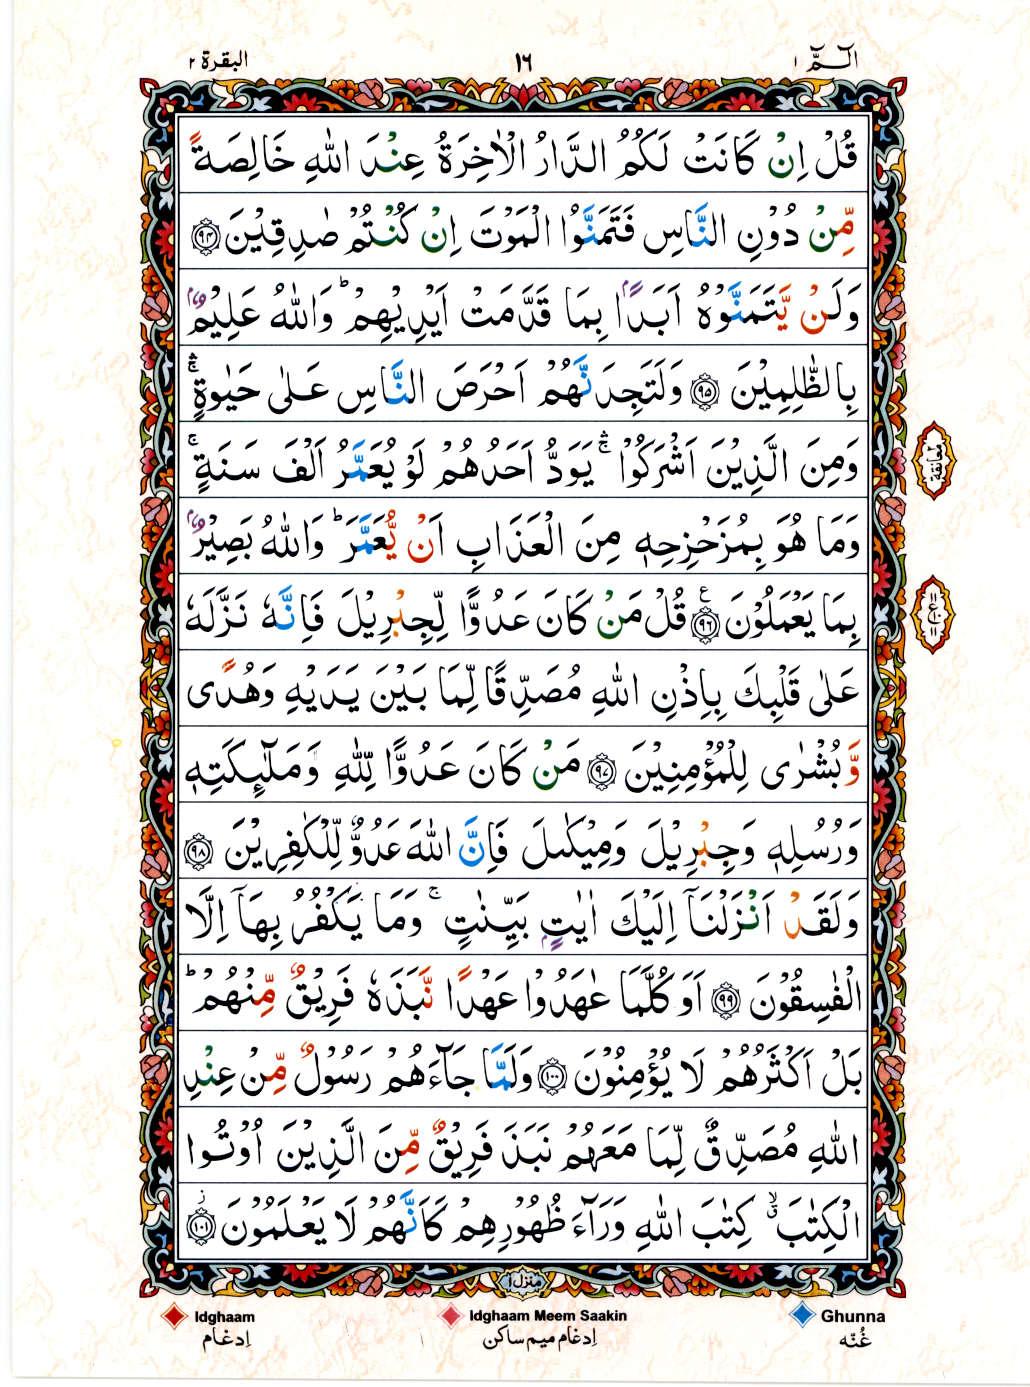 الٓمّٓ ١
١٦
البقرة ٢
قُلْ اِنْ كَانَتْ لَكُمُ الدَّارُ الْاٰخِرَةُ عِنْدَ اللّٰهِ خَالِصَةً
مِّنْ دُوْنِ النَّاسِ فَتَمَنَّوُا الْمَوْتَ اِنْ كُنْتُمْ صٰدِقِيْنَ ﴿٩٤﴾
وَلَنْ يَّتَمَنَّوْهُ اَبَدًۢا بِمَا قَدَّمَتْ اَيْدِيْهِمْ ؕ وَاللّٰهُ عَلِيْمٌۢ
بِالظّٰلِمِيْنَ ﴿٩٥﴾ وَلَتَجِدَنَّهُمْ اَحْرَصَ النَّاسِ عَلٰى حَيٰوةٍ ۛۚ
وَمِنَ الَّذِيْنَ اَشْرَكُوْا ۛۚ يَوَدُّ اَحَدُهُمْ لَوْ يُعَمَّرُ اَلْفَ سَنَةٍ ۚ
وَمَا هُوَ بِمُزَحْزِحِهٖ مِنَ الْعَذَابِ اَنْ يُّعَمَّرَ ؕ وَاللّٰهُ بَصِيْرٌۢ
بِمَا يَعْمَلُوْنَ ﴿٩٦﴾ ع قُلْ مَنْ كَانَ عَدُوًّا لِّجِبْرِيْلَ فَاِنَّهٗ نَزَّلَهٗ
عَلٰى قَلْبِكَ بِاِذْنِ اللّٰهِ مُصَدِّقًا لِّمَا بَيْنَ يَدَيْهِ وَهُدًى
وَّبُشْرٰى لِلْمُؤْمِنِيْنَ ﴿٩٧﴾ مَنْ كَانَ عَدُوًّا لِّلّٰهِ وَمَلٰٓئِكَتِهٖ
وَرُسُلِهٖ وَجِبْرِيْلَ وَمِيْكٰىلَ فَاِنَّ اللّٰهَ عَدُوٌّ لِّلْكٰفِرِيْنَ ﴿٩٨﴾
وَلَقَدْ اَنْزَلْنَاۤ اِلَيْكَ اٰيٰتٍۭ بَيِّنٰتٍ ۚ وَمَا يَكْفُرُ بِهَاۤ اِلَّا
الْفٰسِقُوْنَ ﴿٩٩﴾ اَوَكُلَّمَا عٰهَدُوْا عَهْدًا نَّبَذَهٗ فَرِيْقٌ مِّنْهُمْ ؕ
بَلْ اَكْثَرُهُمْ لَا يُؤْمِنُوْنَ ﴿١٠٠﴾ وَلَمَّا جَآءَهُمْ رَسُوْلٌ مِّنْ عِنْدِ
اللّٰهِ مُصَدِّقٌ لِّمَا مَعَهُمْ نَبَذَ فَرِيْقٌ مِّنَ الَّذِيْنَ اُوْتُوا
الْكِتٰبَ ۙۗ كِتٰبَ اللّٰهِ وَرَآءَ ظُهُوْرِهِمْ كَاَنَّهُمْ لَا يَعْلَمُوْنَ ﴿١٠١﴾ ز
معانقة
منزل ١
Idghaam
Idghaam Meem Saakin
Ghunna
اِدغام
اِدغام ميم ساكن
غُنّه